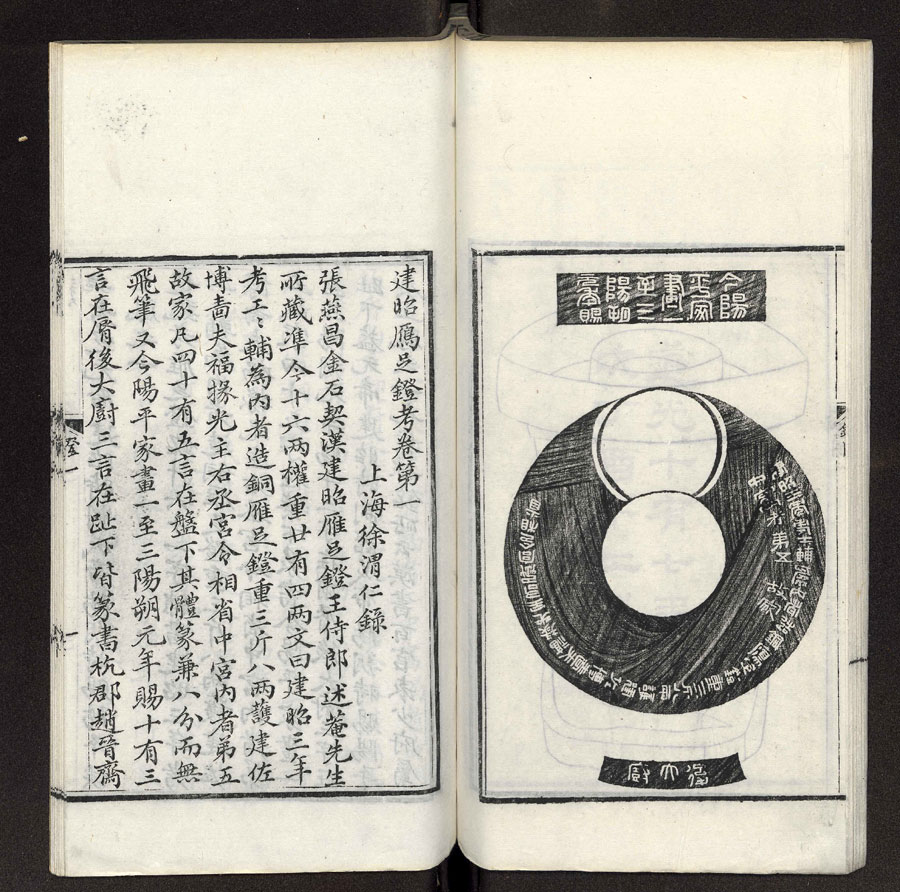 今陽
平家
畫一
至三
陽朔
元年賜
中宮內者第五 故家
後大廚
建昭鴈足鐙考卷第一
上海徐渭仁錄
張燕昌金石契漢建昭雁足鐙王侍郎 述菴先生
所藏準今十六兩權重廿有四兩文曰建昭三年
考工〻輔為內者造銅雁足鐙重三斤八兩護建佐
博嗇夫福掾光主右丞宮令相省中宮內者弟五
故家凡四十有五言在盤下其體篆兼八分而無
飛筆又今陽平家畫一至三陽朔元年賜十有三
言在脣後大廚三言在趾下皆篆書杭郡趙晉齋